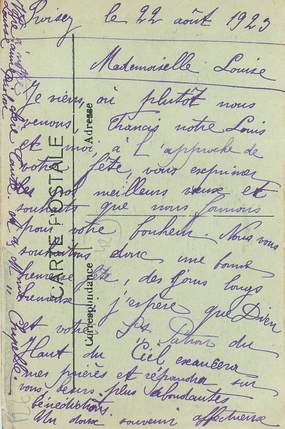 le 22 août 1923
Mademoiselle Louise
Je viens, où plutôt nous
venons Francis notre Louis
et moi, à l'approche de
votre fête, vous exprimer
nos meilleurs vœux et
souhaits que nous formons
pour votre bonheur. Nous vous
souhaitons donc une bonne
heureuse fête, des jours longs
heureux j'espère que Dieu
et votre St Patron du
Haut du Ciel exaucera
mes prières et répandra sur
vous leurs plus abondantes
bénédictions.
Un doux souvenir affectueux
CARTE POSTALE
Correspondance
Adresse